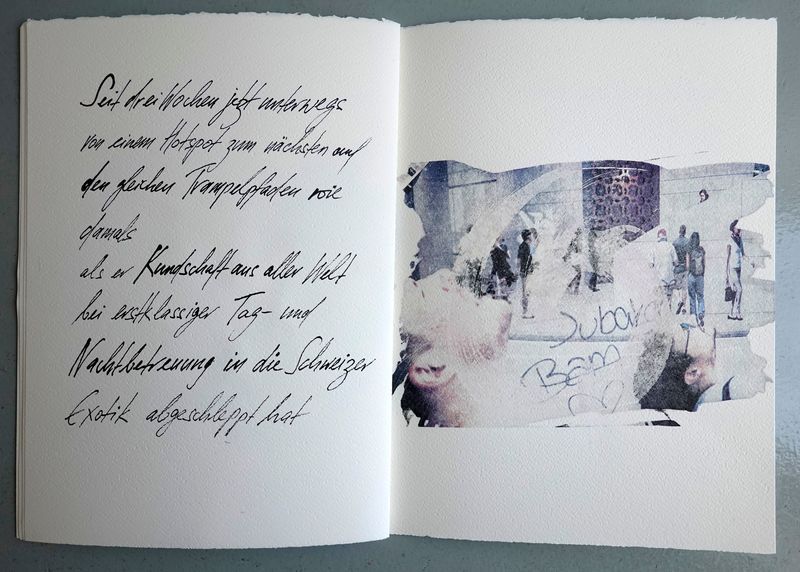 Seit drei Wochen jetzt unterwegs
von einem Hotspot zum nächsten auf
den gleichen Trampelpfaden wie
damals
als er Kundschaft aus aller Welt
bei erstklassiger Tag- und
Nachtbetreuung in die Schweizer
Exotik abgeschleppt hat
Bam